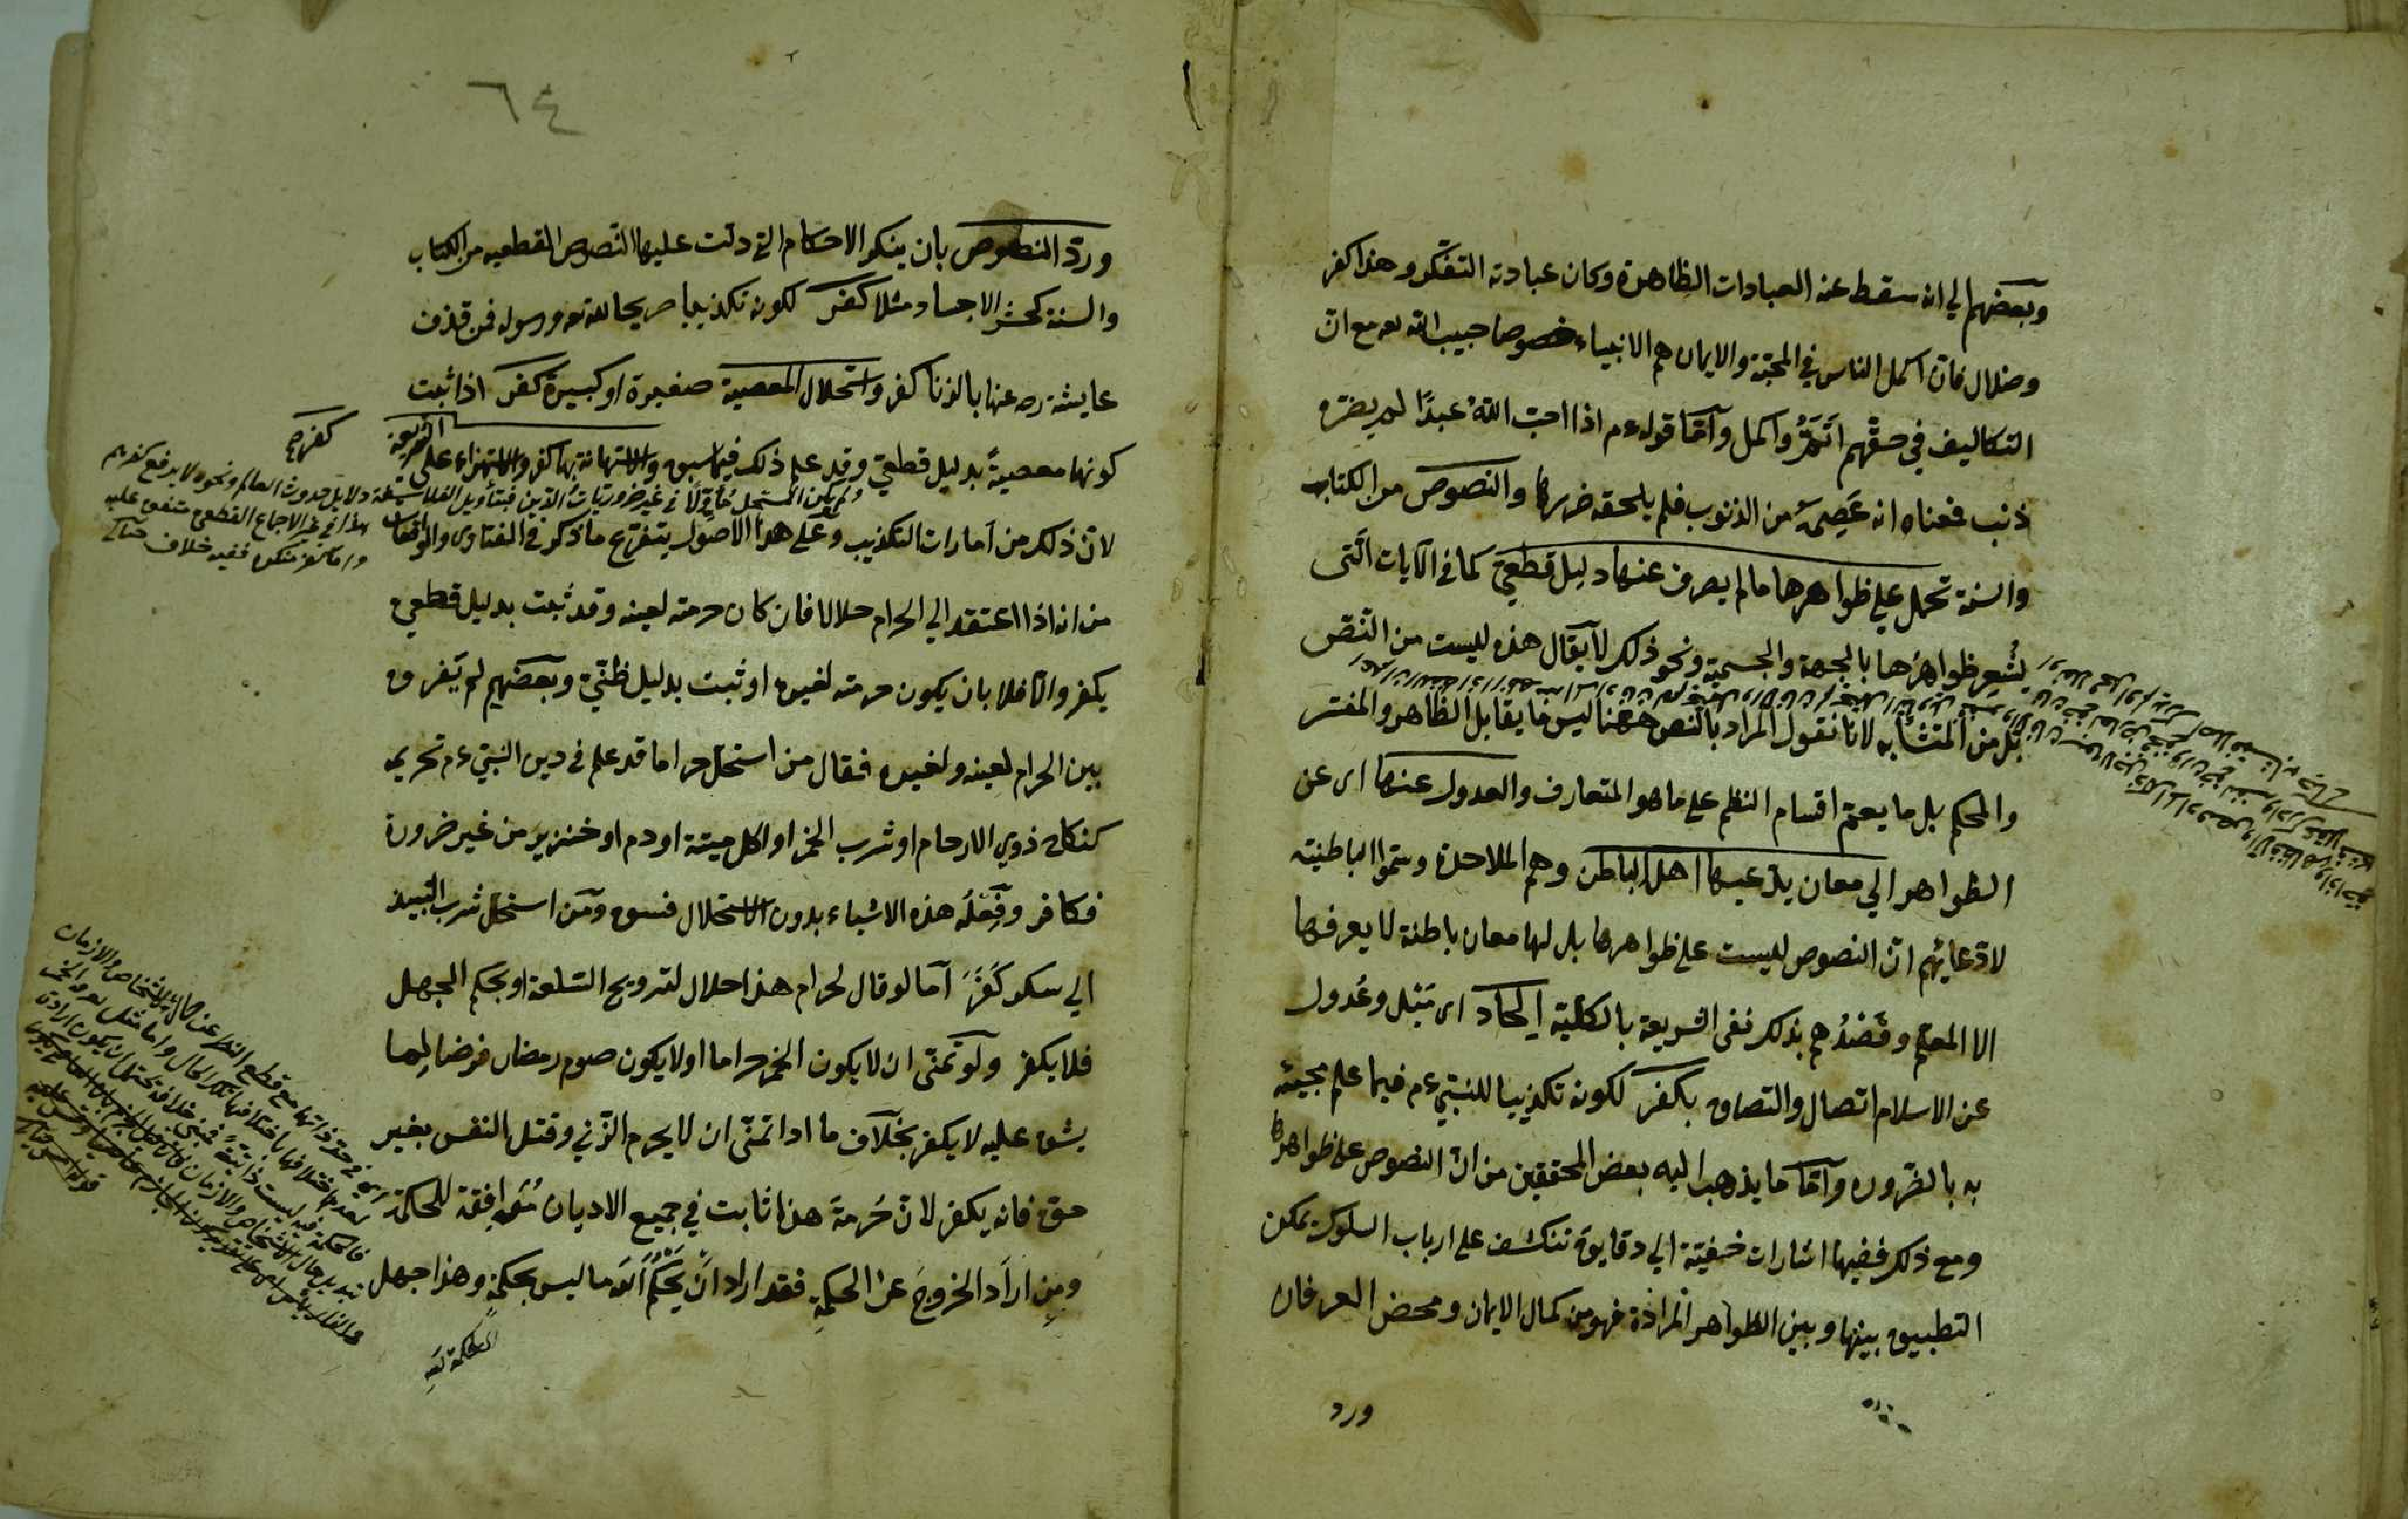 وبعضهم الي انه سقط عنه العبادات الظاهرة وكان عبادته التفكر وهذا كفر
وضلال فان اكمل الناس في المحبة والايمان هم الانبياء خصوصا حبيب الله تعه مع ان
التكاليف في حقهم اتم واكمل واما قوله ءم اذا احب الله عبدًا لم يضره
ذنب فمعناه انه عصمه من الذنوب فلم يلحقه ضررها والنصوص من الكتاب
والسنة تحمل علي ظواهرها ما لم يصرف عنها دليل قطعي كما في الآيات التي
تُشعِر ظواهرُها بالجهة والجسمية ونحو ذلك لا يقال هذه ليست من النص
بل من المتشابه لانا نقول المراد بالنص ههنا ليس ما يقابل الظاهر والمفسر
والمحكم بل ما يعم اقسام النظم علي ما هو المتعارف والعدول عنها اى عن
الظواهر الي معان يدعيها اهل الباطن وهم الملاحدة وسموا الباطنية
لادعائهم ان النصوص ليست علي ظواهرها بل لها معان باطنة لا يعرفها
الا المعلم وقصدُهم بذلك نفى الشريعة بالكلية الحاد اى مَيْل وعُدول
عن الاسلام اتصال والتصاق بكفر لكونه تكذيبا للنبي ءم فيما علم مجيئه
به بالضروره واما ما يذهب اليه بعض المحققين من ان النصوص علي ظواهرها
ومع ذلك ففيها اشارات خفية الي دقايق تنكشف علي ارباب السلوك يمكن
التطبيق بينها وبين الظواهر المرادة فهو من كمال الايمان ومحض العرفان
ورد
٦٤
ورد النصوص بان ينكر الاحكام التي دلت عليها النصوص القطعيه من الكتاب
والسنة كحشر الاجساد مثلا كفر لكونه تكذيبا صريحا لله تعه ورسوله فمن قذف
عايشة رضه عنها بالزنا كفر واستحلال المعصية صغيرة او كبيرة كفر اذا ثبت
كونها معصيةً بدليل قطعي وقد علم ذلك فيما سبق والاستهانة بها كفر والاستهزاء علي الشريعة
كفر
ولم يكن المستحل مُأوِّلًا في غير ضروريات الدين فتأويل الفلاسفة دلايل حدوث العالم ونحوه لا يدفع كفرهم
هذا في غير الاجماع القطعي متفق عليه
واما كفر منكره ففيه خلاف
لان ذلك من امارات التكذيب وعلي هذا الاصول يتفرع ما ذكر في الفتاوى والواقعات
من انه اذا اعتقد الي الحرام حلالا فان كان حرمته لعينه وقد ثبت بدليل قطعي
يكفر والا فلا بان يكون حرمته لغيره او ثبت بدليل ظني وبعضهم لم يفرق
بين الحرام لعينه ولغيره فقال من استحل حراما قد علم في دين النبي ءم تحريمه
كنكاح ذوي الارحام او شرب الخمر او اكل ميتة او دم او خنزير من غير ضرورة
فكافر وفِعلُه هذه الاشياء بدون الاستحلال فسق ومن استحل شرب النبيذ
الي سكر كَفَرَ اما لو قال لحرام هذا حلال لترويج السلعة او بحكم الجهل
فلا يكفر ولو تمنى ان لا يكون الخمر حراما او لا يكون صوم رمضان فرضا لِما
يشق عليه لا يكفر بخلاف ما اذا تمنى ان لا يحرم الزني وقتل النفس بغير
حق فانه يكفر لان حُرمةَ هذا ثابت في جميع الاديان مُوافِقة للحكمة
ومن اراد الخروجَ عن الحكمةِ فقد اراد ان يَحكُمَ الله ما ليس بحكمةٍ وهذا جهل